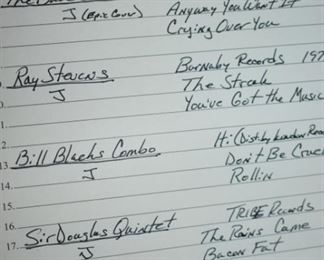 J (Epic Cover) Anyway You Want It
Crying Over You
Ray Stevens Barnaby Records 197
J The Streak
You've Got the Music
11.
12.
13. Bill Blacks Combo Hi (Dist. by London Reco
14. J Don't Be Crue
15. Rollin
16.
17. Sir Douglas Quintet TRIBE Records
J The Rains Came
Bacon Fat